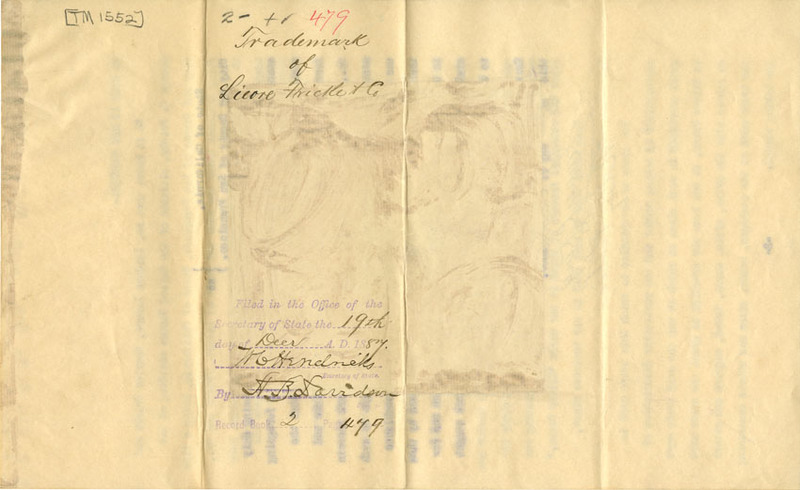 [TM 1552]
2- 479
Trademark
of
Licore Fricke & Co
Filed in the Office of the
Secretary of State the 19th
day of Decr A. D. 1887.
W C Hendricks
Secretary of State.
By H. B. Davidson
Record Book 2 Page 479